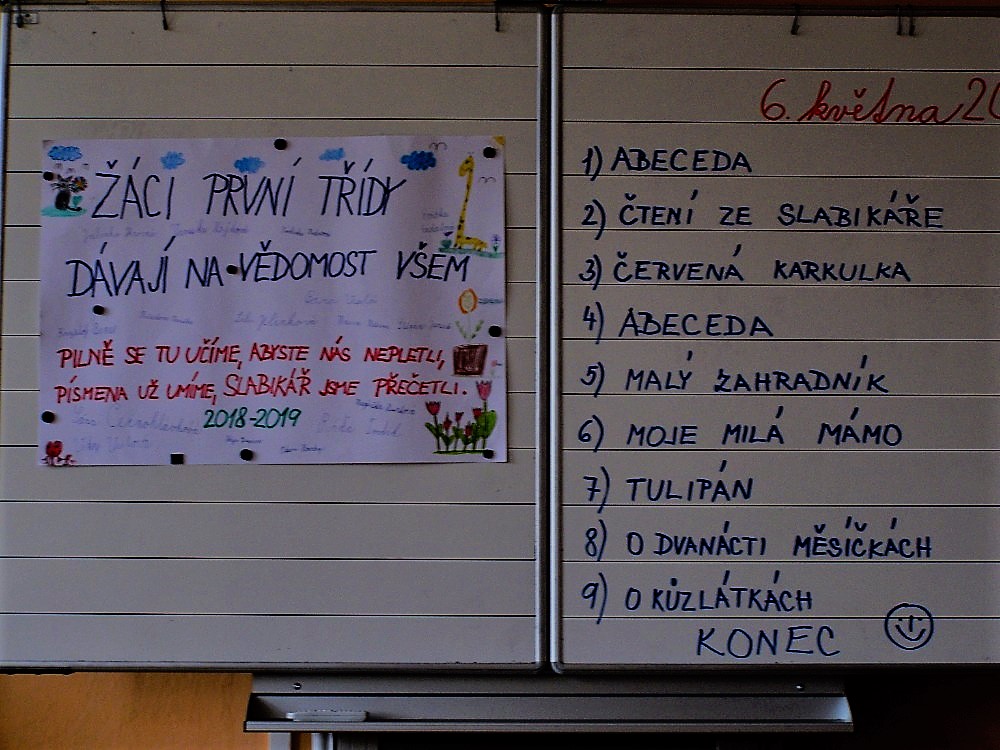 ŽÁCI PRVNÍ TŘÍDY
DÁVAJÍ NA VĚDOMOST VŠEM
PILNĚ SE TU UČÍME, ABYSTE NÁS NEPLETLI,
PÍSMENA UŽ UMÍME, SLABIKÁŘ JSME PŘEČETLI.
2018-2019
6. května 20
1) ABECEDA
2) ČTENÍ ZE SLABIKÁŘE
3) ČERVENÁ KARKULKA
4) ABECEDA
5) MALÝ ZAHRADNÍK
6) MOJE MILÁ MÁMO
7) TULIPÁN
8) O DVANÁCTI MĚSÍČKÁCH
9) O KŮZLÁTKÁCH
KONEC